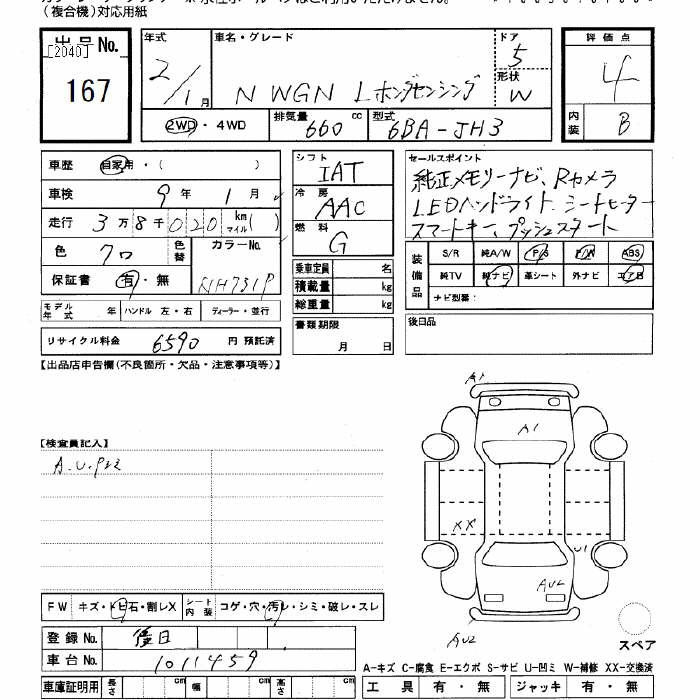 （複合機）対応用紙
出品No.
[2040]
167
年式 車名・グレード ドア 評価点
2/1月 N WGN Lホンダセンシング 5 4
形状 W
2WD・4WD 排気量 660 cc 型式 6BA-JH3 内装 B
車歴 自家用・( )
車検 9年1月
走行 3万8千020km マイル( )
色 クロ 色替 カラーNo.
保証書 有・無 NH731P
モデル年式 年 ハンドル 左・右 ディーラー・並行
リサイクル料金 6590 円 預託済
シフト IAT
冷房 AAC
燃料 G
乗車定員 名
積載量 kg
総重量 kg
書類期限
月 日
セールスポイント
純正メモリーナビ、Rカメラ
LEDヘッドライト、シートヒーター
スマートキー、プッシュスタート
装備品 S/R 純A/W P/S P/W ABS
純TV 純ナビ 革シート 外ナビ エアB
ナビ型番：
後日品
【出品店申告欄(不良箇所・欠品・注意事項等)】
【検査員記入】
A1
A1
XX
U1
AU2
AU2
FW キズ・トビ石・割レX シート内装 コゲ・穴・汚レ・シミ・破レ・スレ
登録No. 後日
車台No. 1011459
車庫証明用 長さ cm 幅 cm 高さ cm
スペア
A-キズ C-腐食 E-エクボ S-サビ U-凹ミ W-補修 XX-交換済
工具 有・無 ジャッキ 有・無